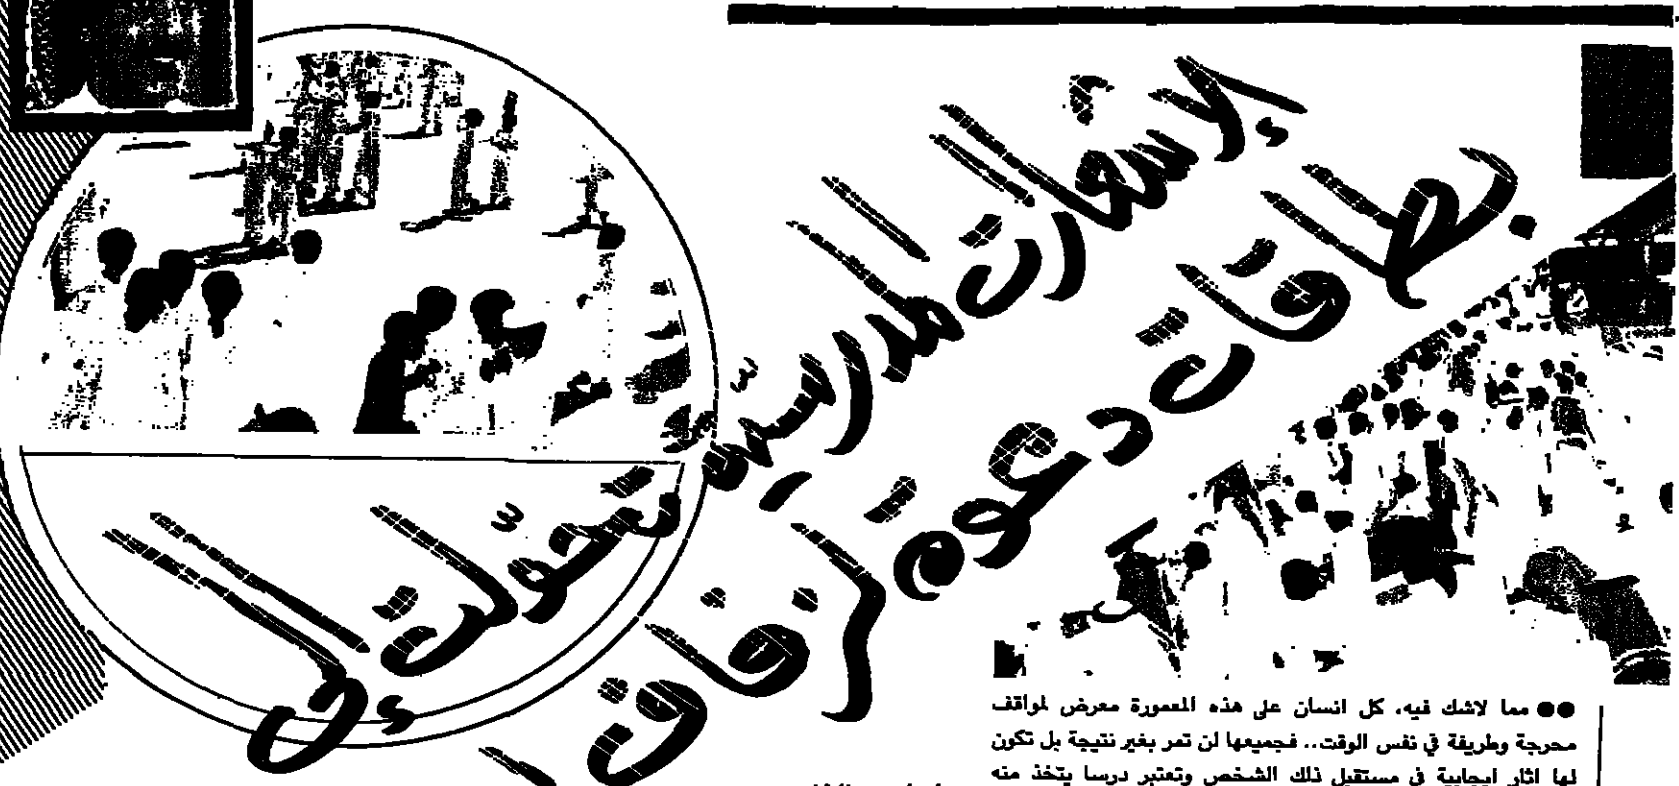 الإستمارات المدرسية تحولت إلى
بطاقات دعوة لزفاف
●● مما لاشك فيه، كل انسان على هذه المعمورة معرض لمواقف
محرجة وطريفة في نفس الوقت.. فجميعها لن تمر بغير نتيجة بل تكون
لها اثار ايجابية في مستقبل ذلك الشخص وتعتبر درسا يتخذ منه